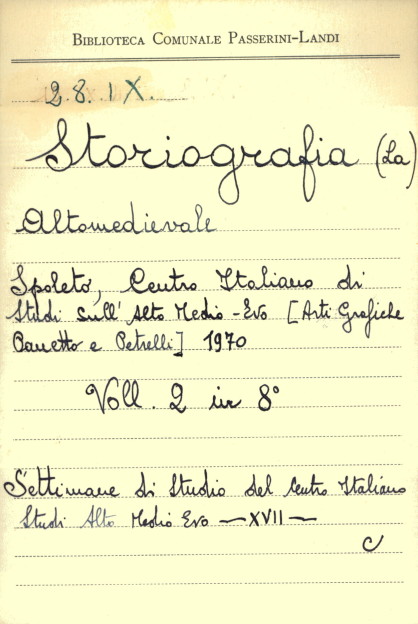 BIBLIOTECA COMUNALE PASSERINI-LANDI
2.8.IX.
Storiografia (La)
Altomedievale
Spoleto, Centro Italiano di
Studi sull' Alto Medio-Evo [Arti Grafiche
Panetto e Petrelli] 1970
Voll. 2 in 8°
Settimane di Studio del Centro Italiano
Studi Alto Medio Evo —XVII—
C